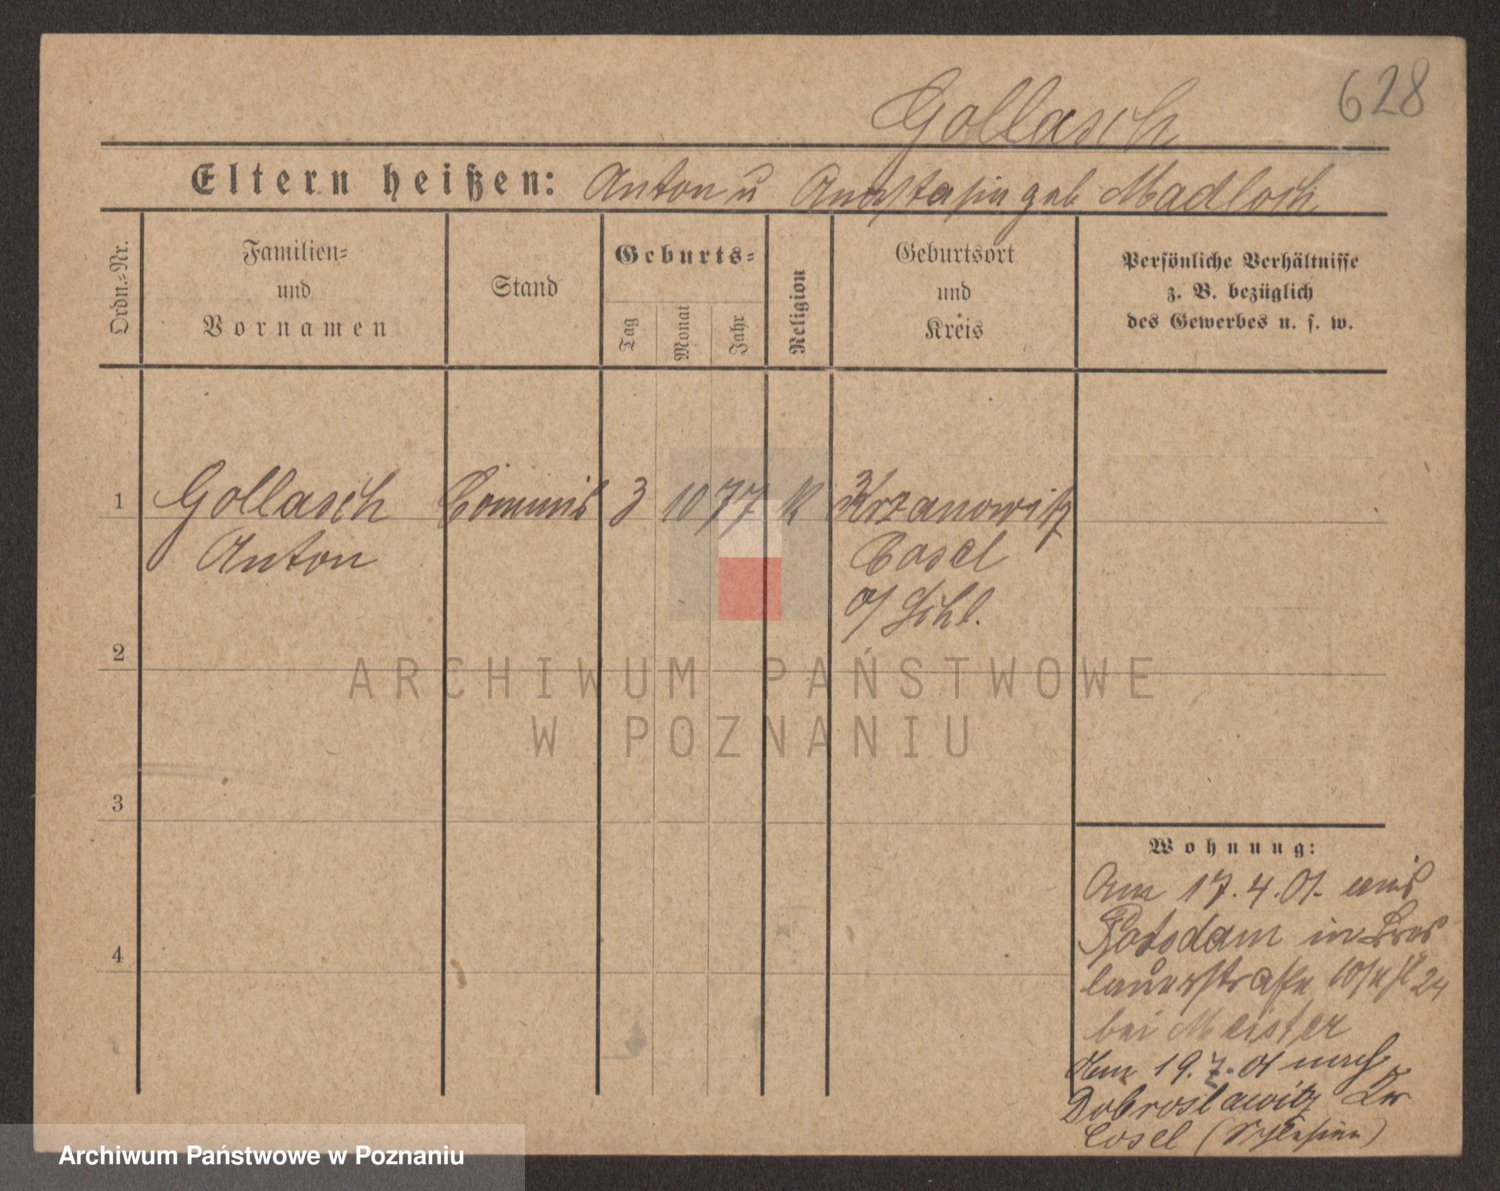 628
Gollasch
Eltern heißen: Anton u Anastasia geb Madloch
Ordn.-Nr.
Familien-
und
Vornamen
Stand
Geburts-
Tag
Monat
Jahr
Religion
Geburtsort
und
Kreis
Persönliche Verhältnisse
z. B. bezüglich
des Gewerbes u. s. w.
1 Gollasch Commis 3 10 77 K Krzanowitz
Anton Cosel
o/ Schl.
2
3
4
Wohnung:
Am 17.4.01. aus
Potsdam in Bres
lauerstraße 24
bei Meister
Am 19.7.01 nach
Dobroslawitz Kr
Cosel (Schlesien)
ARCHIWUM PAŃSTWOWE
W POZNANIU
Archiwum Państwowe w Poznaniu